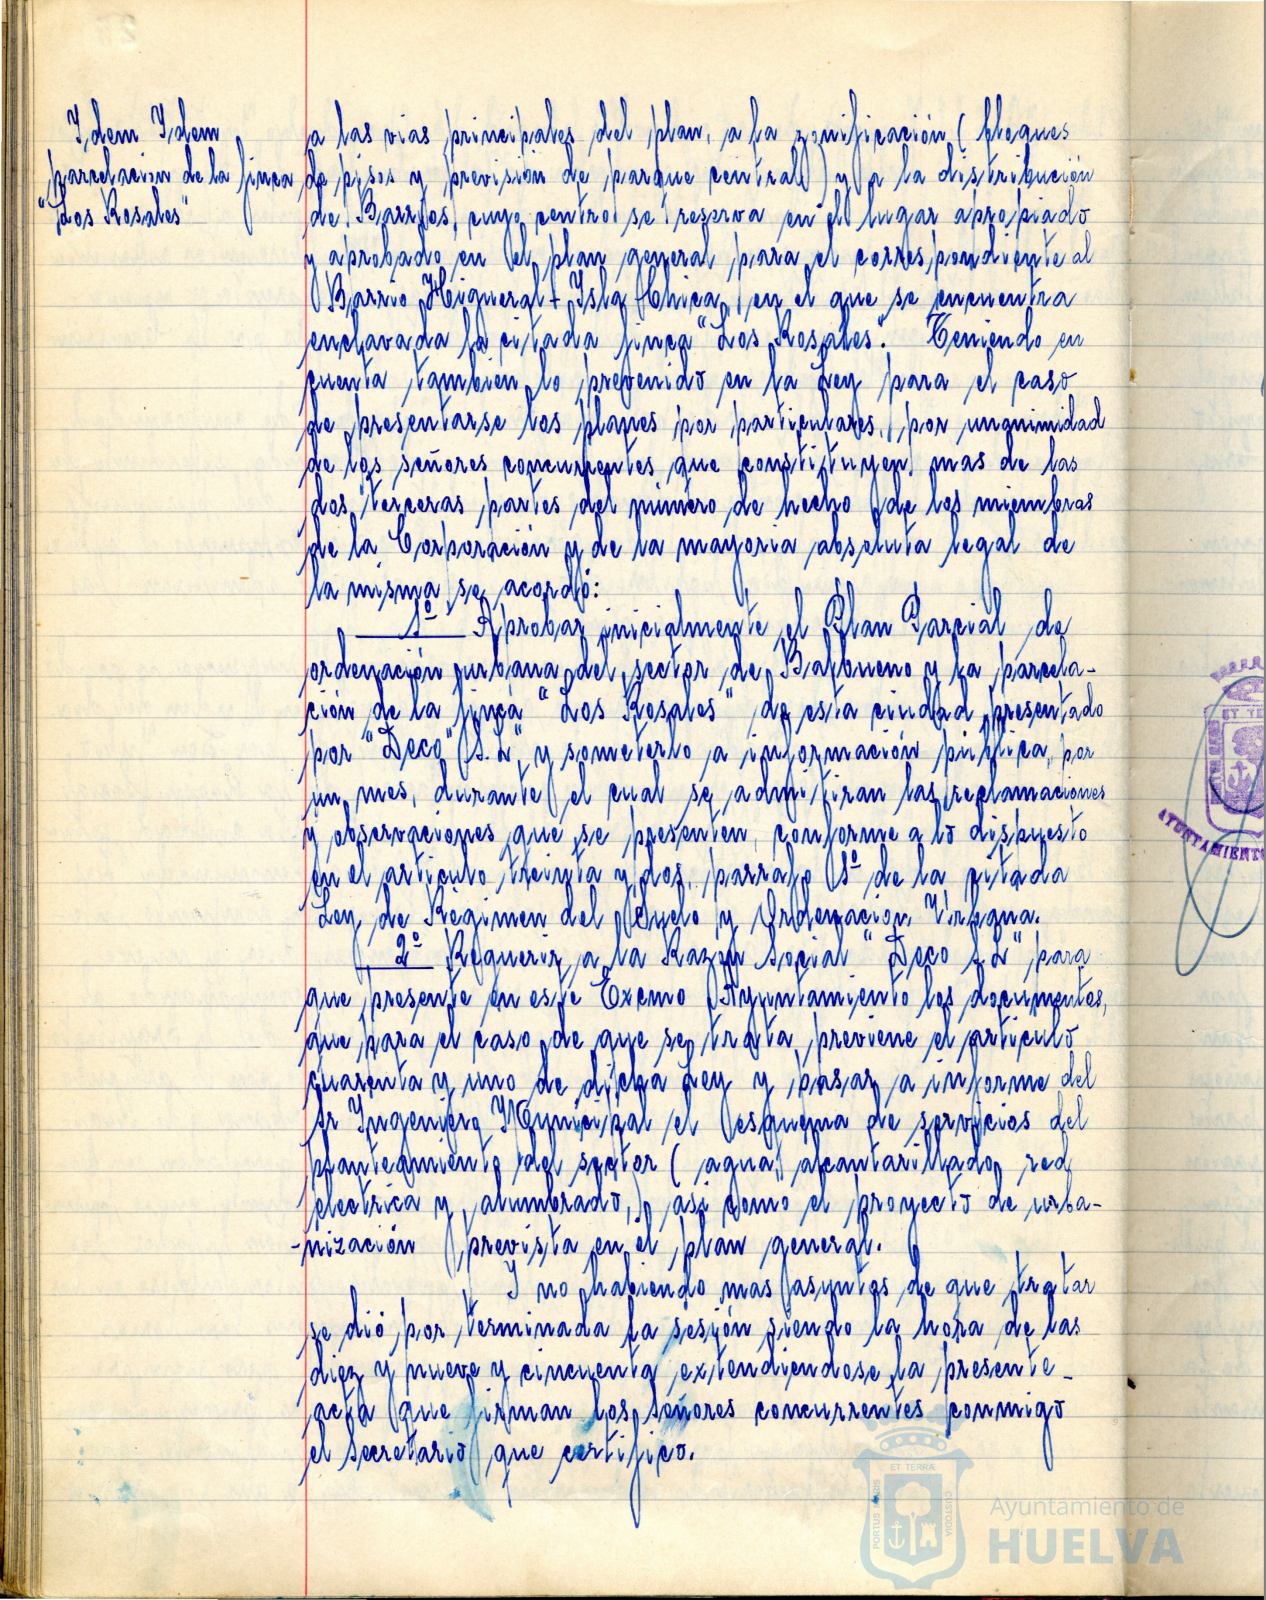 Idem Idem
parcelacion de la finca
"Los Rosales"
a las vias principales del plan, a la zonificación (bloques
de pisos y previsión de parque central) y a la distribución
de Barrios, cuyo centro se reserva en el lugar apropiado
y aprobado en el plan general para el correspondiente al
Barrio Higueral + Isla Chica, en el que se encuentra
enclavada la citada finca "Los Rosales". Teniendo en
cuenta también lo prevenido en la Ley para el caso
de presentarse los planes por particulares, por unanimidad
de los señores concurrentes que constituyen mas de las
dos terceras partes del número de hecho de los miembros
de la Corporación y de la mayoria absoluta legal de
la misma se acordó:
1º Aprobar inicialmente el Plan Parcial de
ordenación urbana del sector de Balbueno y la parcela-
ción de la finca "Los Rosales" de esta ciudad presentado
por "Deco S.L", y someterlo a información pública, por
un mes, durante el cual se admitiran las reclamaciones
y observaciones que se presenten, conforme a lo dispuesto
en el articulo treinta y dos, parrafo 1º de la citada
Ley de Régimen del Suelo y Ordenación Urbana.
2º Requerir a la Razón Social "Deco S.L" para
que presente en este Excmo Ayuntamiento los documentos,
que para el caso de que se trata, previene el articulo
cuarenta y uno de dicha Ley y pasar a informe del
Sr Ingeniero Municipal el esquema de servicios del
planteamiento del sector (agua, alcantarillado, red
electrica y alumbrado,) asi como el proyecto de urba-
-nización prevista en el plan general.
I no habiendo mas asuntos de que tratar
se dió por terminada la sesión siendo la hora de las
diez y nueve y cincuenta, extendiendose la presente
acta que firman los señores concurrentes conmigo
el Secretario que certifico.
ET TERRÆ
PORTUS MARIS
CUSTODIA
Ayuntamiento de
HUELVA
AYUNTAMIENTO